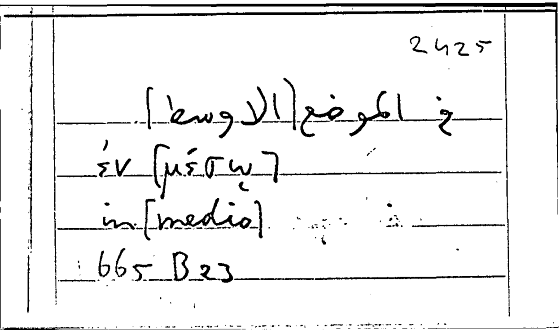 2425
في الموضع [الاوسط]
ἐν [μέσῳ]
in [medio]
665 B23